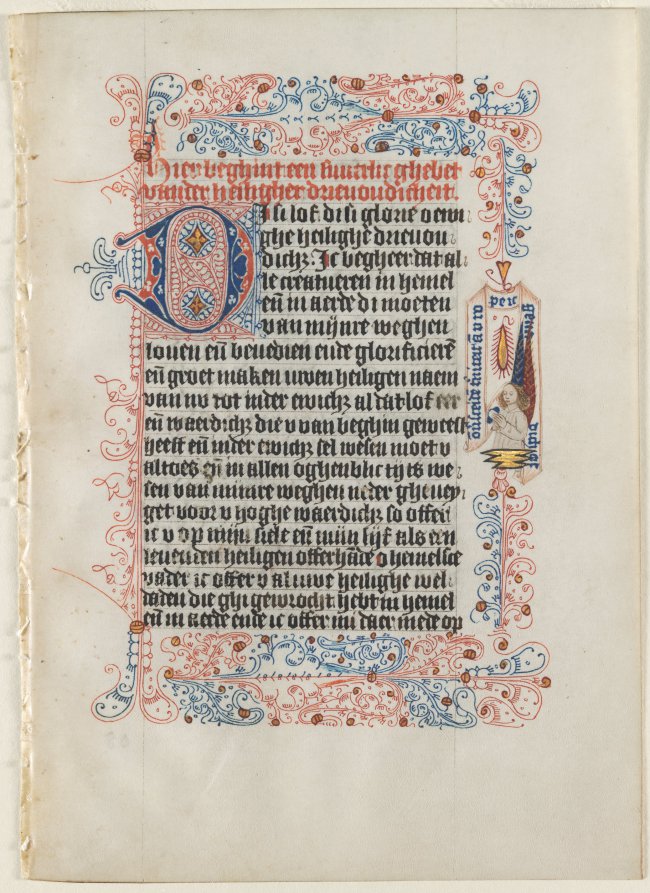 Hier beghint een suuerlic ghebet
vander heiligher drieuoudicheit.
Di si lof di si glorie o ewi
ghe heilighe drieuou
dich3. Ic begheer dat al
le creatueren in hemel
en̄ in aerde di moeten
van mijnre weghen
louen en̄ benedien ende glorificierē
en̄ groet maken uwen heiligen naem
van nv tot inder ewich3 al dat lof eer
en̄ waerdich3 die v van beghin geweest
heeft en̄ inder ewich3 sel wesen moet v
altoes en̄ in allen oghenblic tijts we
sen van minre weghen
get voor v hoghe waerdich3 so offer
ic v op mijn siele en̄ mijn lijf als een
leuenden heiligen offerhāde o hemelsce
vader ic offer v al uwe heilighe wel
daden die ghi gewrocht hebt in hemel
en̄ in aerde ende ic offer mi daer mede op